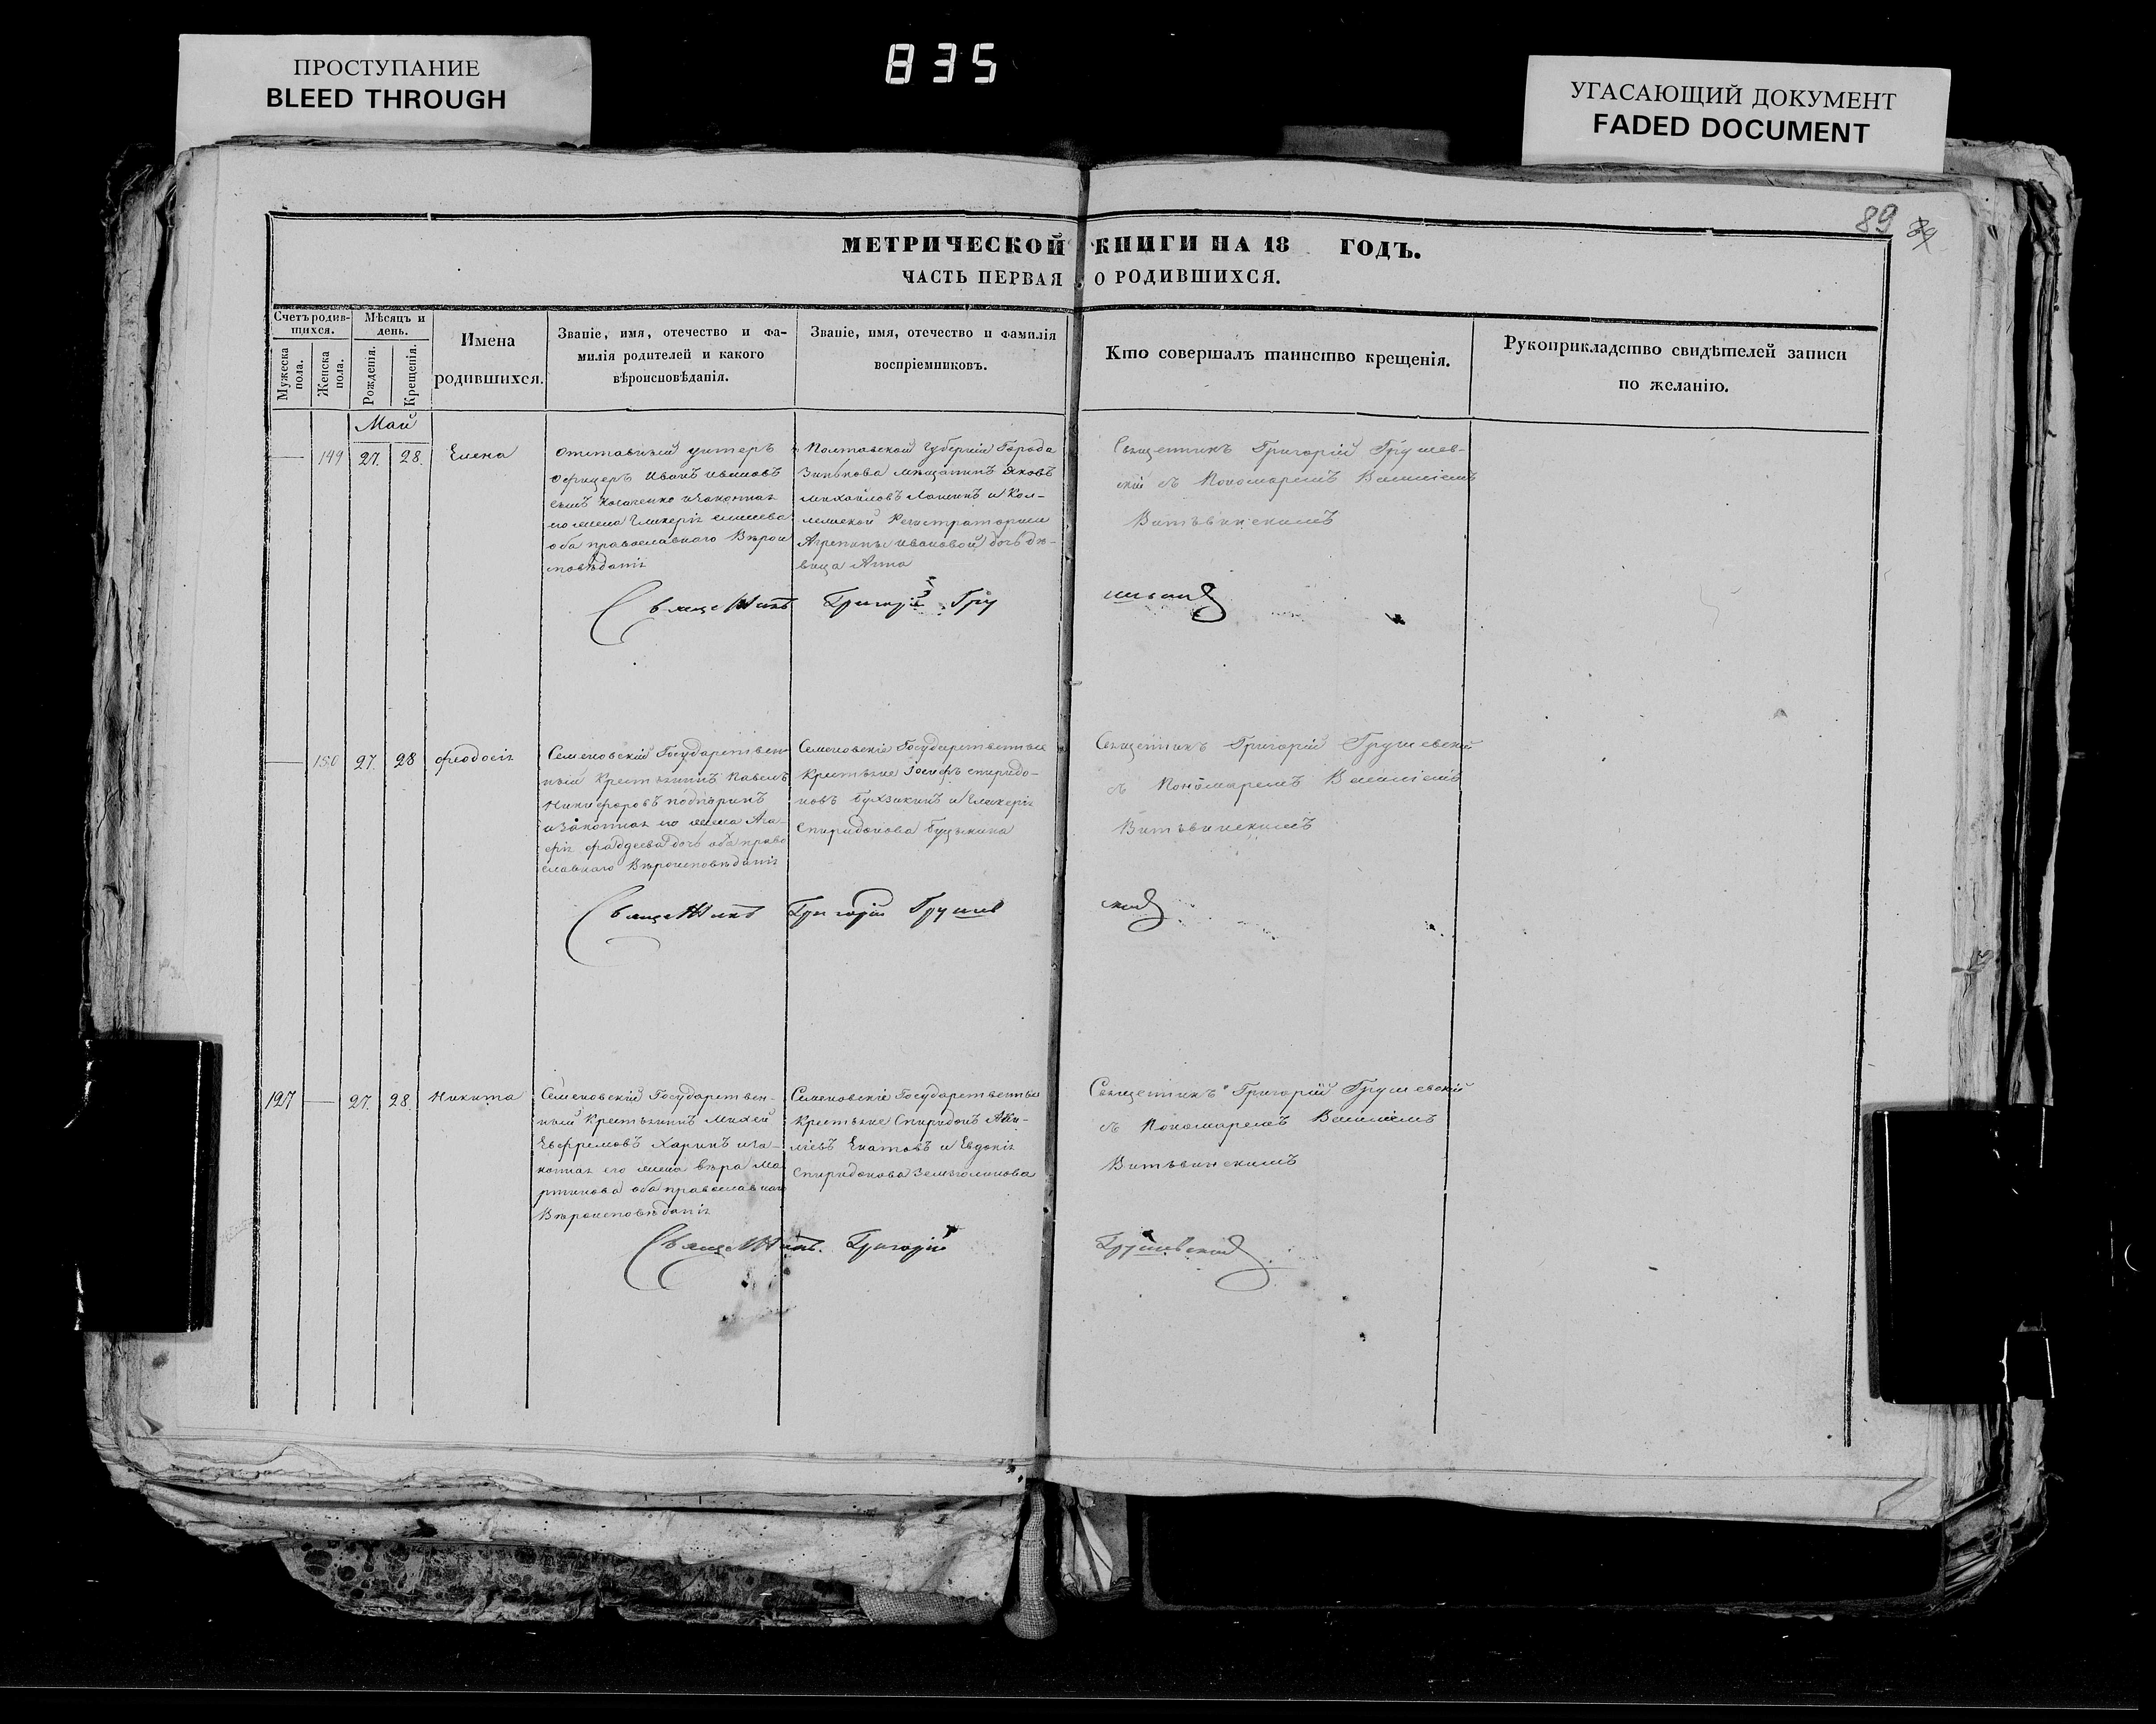 ПРОСТУПАНИЕ
BLEED THROUGH
835
УГАСАЮЩИЙ ДОКУМЕНТ
FADED DOCUMENT
89
МЕТРИЧЕСКОЙ КНИГИ НА 18 ГОДЪ.
ЧАСТЬ ПЕРВАЯ О РОДИВШИХСЯ.
Счетъ родив-
щихся.
Мужеска
пола.
Женска
пола.
Мѣсяцъ и
день.
Рожденія.
Крещенія.
Имена
родившихся.
Званіе, имя, отечество и фа-
милія родителей и какого
вѣроисповѣданія.
Званіе, имя, отечество и фамилія
воспріемниковъ.
Кто совершалъ таинство крещенія.
Рукоприкладство свидѣтелей записи
по желанію.
Май
149 27. 28. Елена
Отставный унтеръ
Офицеръ Иванъ Ивановъ
сынъ и законная
его жена Гликерія
оба православнаго Вѣрои
сповѣданія
Полтавской Губерніи Города
Зинькова мещанинъ Яковъ
Михайловъ и Кол-
лежской Регистраторши
Агрепины Ивановой дочь дѣ-
вица Анна
Священникъ Григорій Грушев-
скій съ Пономаремъ Василіемъ
Витвинскимъ
Священникъ Григорій Гру
шевскій
150 27. 28 Феодосія
Семеновскій Государствен
ный Крестьянинъ Павелъ
Никифоровъ
и законная его жена Ага-
фія Фаддеева дочь оба право
славнаго Вѣроисповѣданія
Семеновскіе Государственные
Крестьяне Іосифъ Спиридо-
новъ и Гликерія
Спиридонова
Священникъ Григорій Грушевскій
съ Пономаремъ Василіемъ
Витвинскимъ
Священникъ Григорій Грушев
скій
127 27. 28. Никита
Семеновскій Государствен-
ный Крестьянинъ Михей
Евфремовъ Харинъ и за-
конная его жена Вѣра Ма
ртинова оба православнаго
Вѣроисповѣданія
Семеновскіе Государственные
Крестьяне Спиридонъ
и Евдокія
Спиридонова
Священникъ Григорій Грушевскій
съ Пономаремъ Василіемъ
Витвинскимъ
Священникъ Григорій Грушевскій